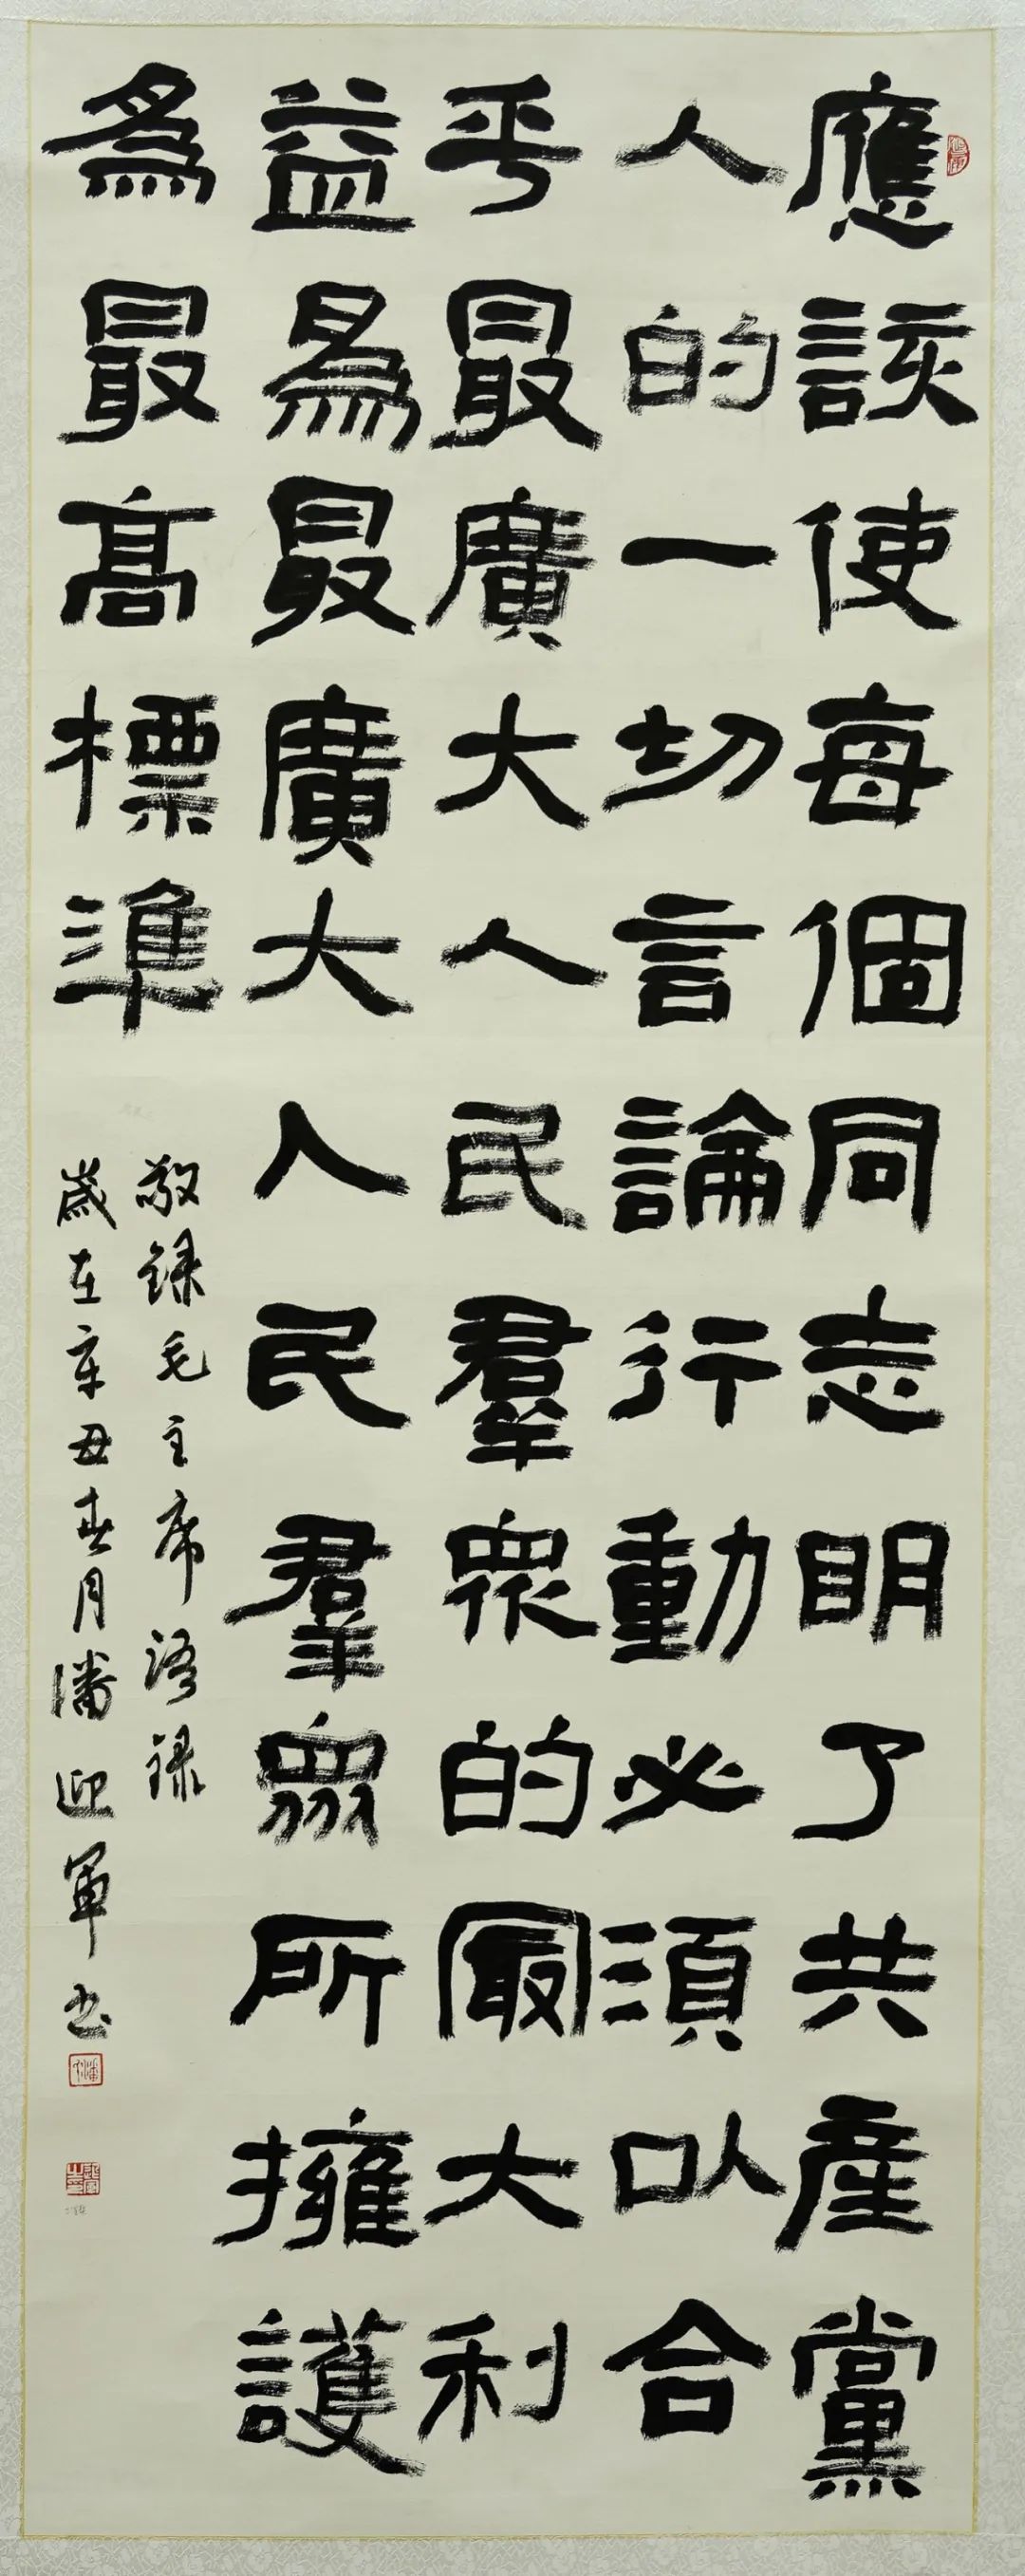 應該使每個同志明了共產黨
人的一切言論行動必須以合
乎最廣大人民羣眾的最大利
益為最廣大人民羣眾所擁護
為最高標準
敬録毛主席語録
歲在辛丑春月潘迎軍书